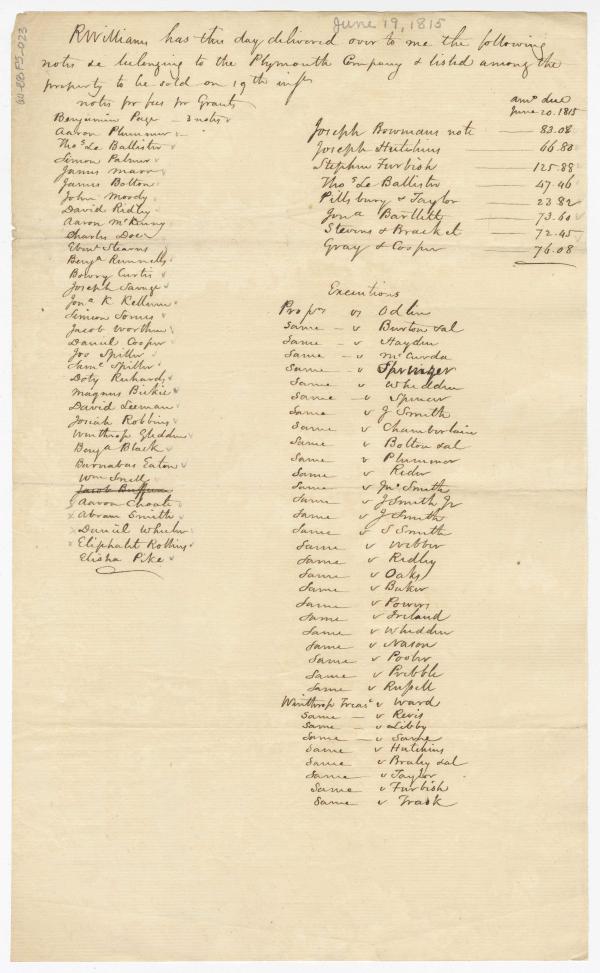 June 19, 1815
RWilliams has this day delivered over to me the following
notes &c belonging to the Plymouth Company & listed among the
property to be sold on 19th inst
notes for fees for Grants
Benjamin Page - 3 notes
Aaron Plummer
Thos Le Ballister
Simon Palmer
James Marr
James Bolton
John Moody
David Ridley
Aaron McKenny
Charles Doe
Ebenr Stearns
Benja Runnells
Bowry Curtis
Joseph Savage
Jona K Kellum
Simion Somes
Jacob Worthen
Daniel Cooper
Jos Spiller
Saml Spiller
Doty Richards
Magnus Bickie
David Leeman
Josiah Robbins
Winthrop Gliddin
Benja Black
Barnabas Eaton
Wm Snell
Jacob Buffum
Aaron Choate
Abram Smith
Daniel Wheeler
Eliphalet Robbins
Elisha Pike
amt due
June 20. 1815
Joseph Bowmans note 83.08
Joseph Hutchins 66.80
Stephen Furbish 125.88
Thos Le Ballister 47.46
Pillsbury & Taylor 23.82
Jona Bartlett 73.60
Stevens & Bracket 72.45
Gray & Cooper 76.08
Executions
Propr vs Odlin
Same - v Burton & al
Same - v Hayden
Same - v McCurda
Same - v Springer
Same v Whidden
Same - v Spencer
Same v J Smith
Same v Chamberlain
Same v Bolton & al
Same v Plummer
Same v Rider
Same - v Jno Smith
Same - v J Smith Jr
Same v J Smith
Same v S Smith
Same v Webber
Same v Ridley
Same v Oaks
Same v Baker
Same v Powers
Same v Ireland
Same v Whidden
Same v Nason
Same v Pooler
Same v Pribble
Same v Russell
Winthrop Treasr v Ward
Same - v Revis
Same - v Libby
Same - v Same
Same v Hutchins
Same v Braley & al
Same v Taylor
Same v Furbish
Same v Trask